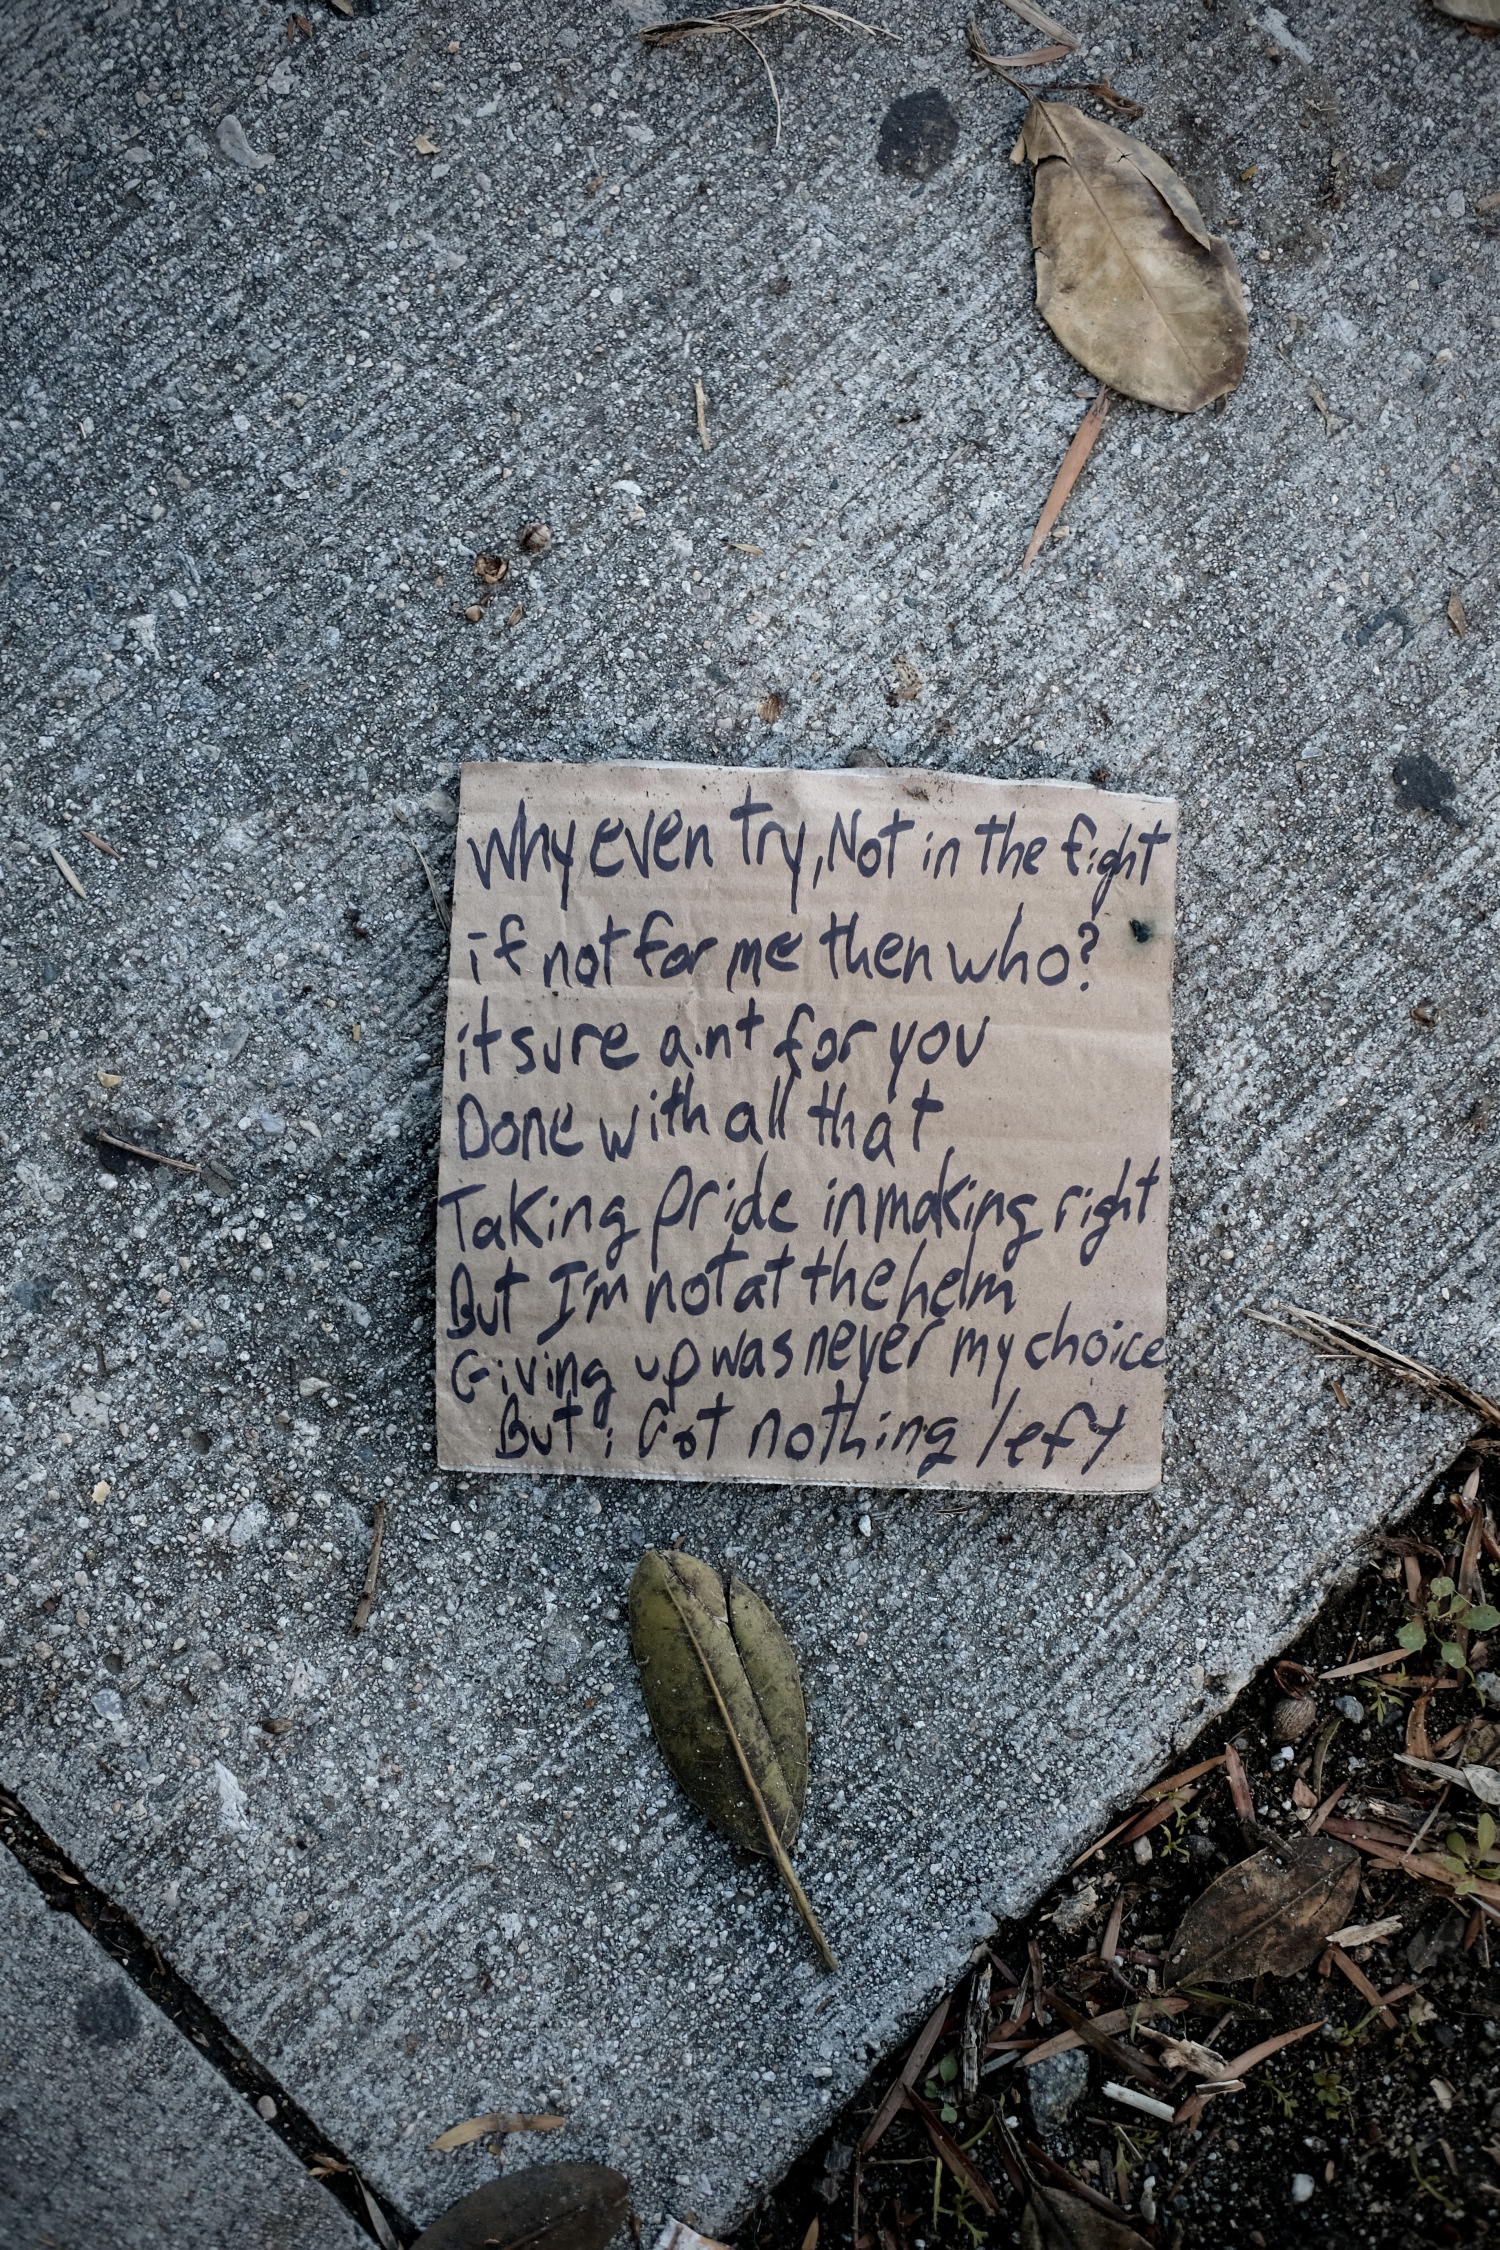 Why even try, Not in the fight
if not for me then who?
it sure aint for you
Done with all that
Taking pride in making right
But I'm not at the helm
Giving up was never my choice
But i Got nothing left